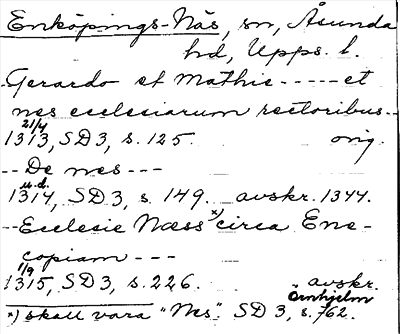 Enköpings-Näs, sn, Åsunda
hd, Upps. l.
-Gerardo et Mathie ----- et
nes ecclesiarum rectoribus--
21/4
1313, SD 3, s. 125. orig.
-- De nes ---
u.d.
1314, SD 3, s. 149. avskr. 1344.
--Ecclesie Næss x) circa Ene-
copiam ---
1/9
1315, SD 3, s. 226. avskr.
Örnhjelm
x) skall vara "Nes". SD 3, s. 762.